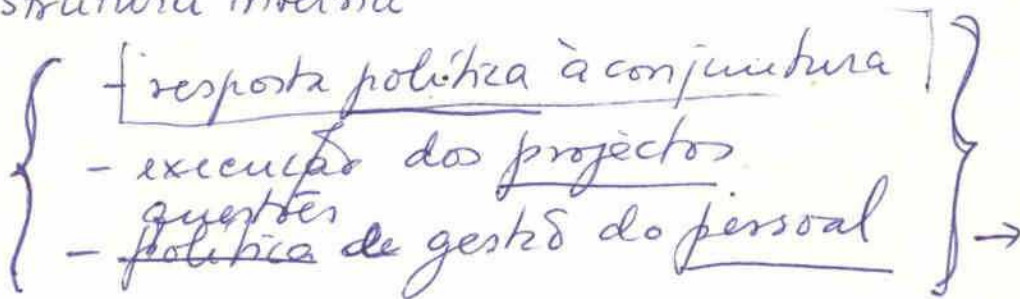 estrutura interna
- resposta política à conjuntura
- execução dos projectos
questões
- política de gestão do pessoal →